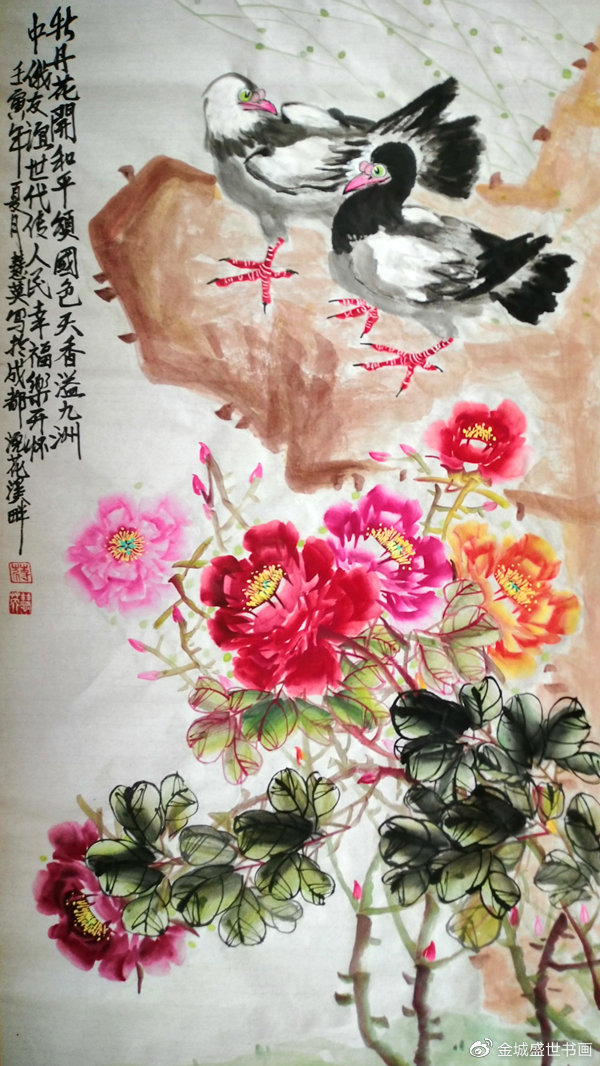 牡丹花開和平頌國色天香溢九洲
中俄友谊世代传人民幸福樂开怀
壬寅年夏月慧英写於成都浣花溪畔
金城盛世书画